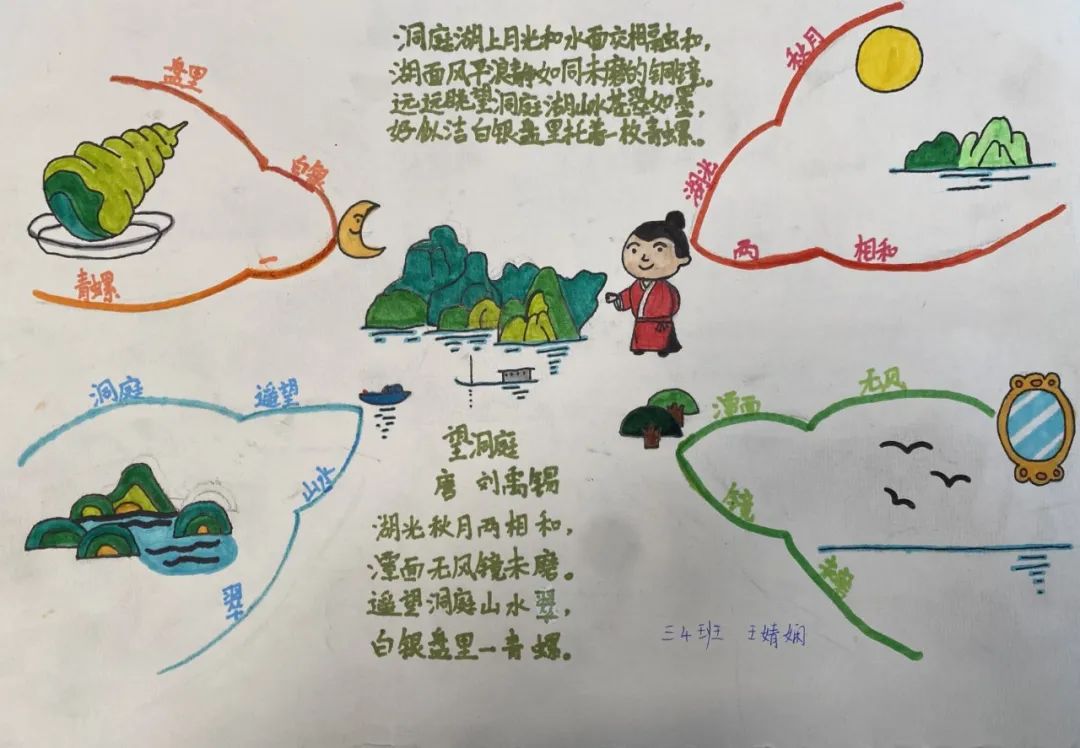 洞庭湖上月光和水面交相融和，
湖面风平浪静如同未磨的铜镜。
远远眺望洞庭湖山水苍翠如墨，
好似洁白银盘里托着一枚青螺。
盘里
白银
一
青螺
秋月
湖光
两
相和
洞庭
遥望
山水
翠
潭面
无风
镜
未磨
望洞庭
唐 刘禹锡
湖光秋月两相和，
潭面无风镜未磨。
遥望洞庭山水翠，
白银盘里一青螺。
三4班 王婧娴